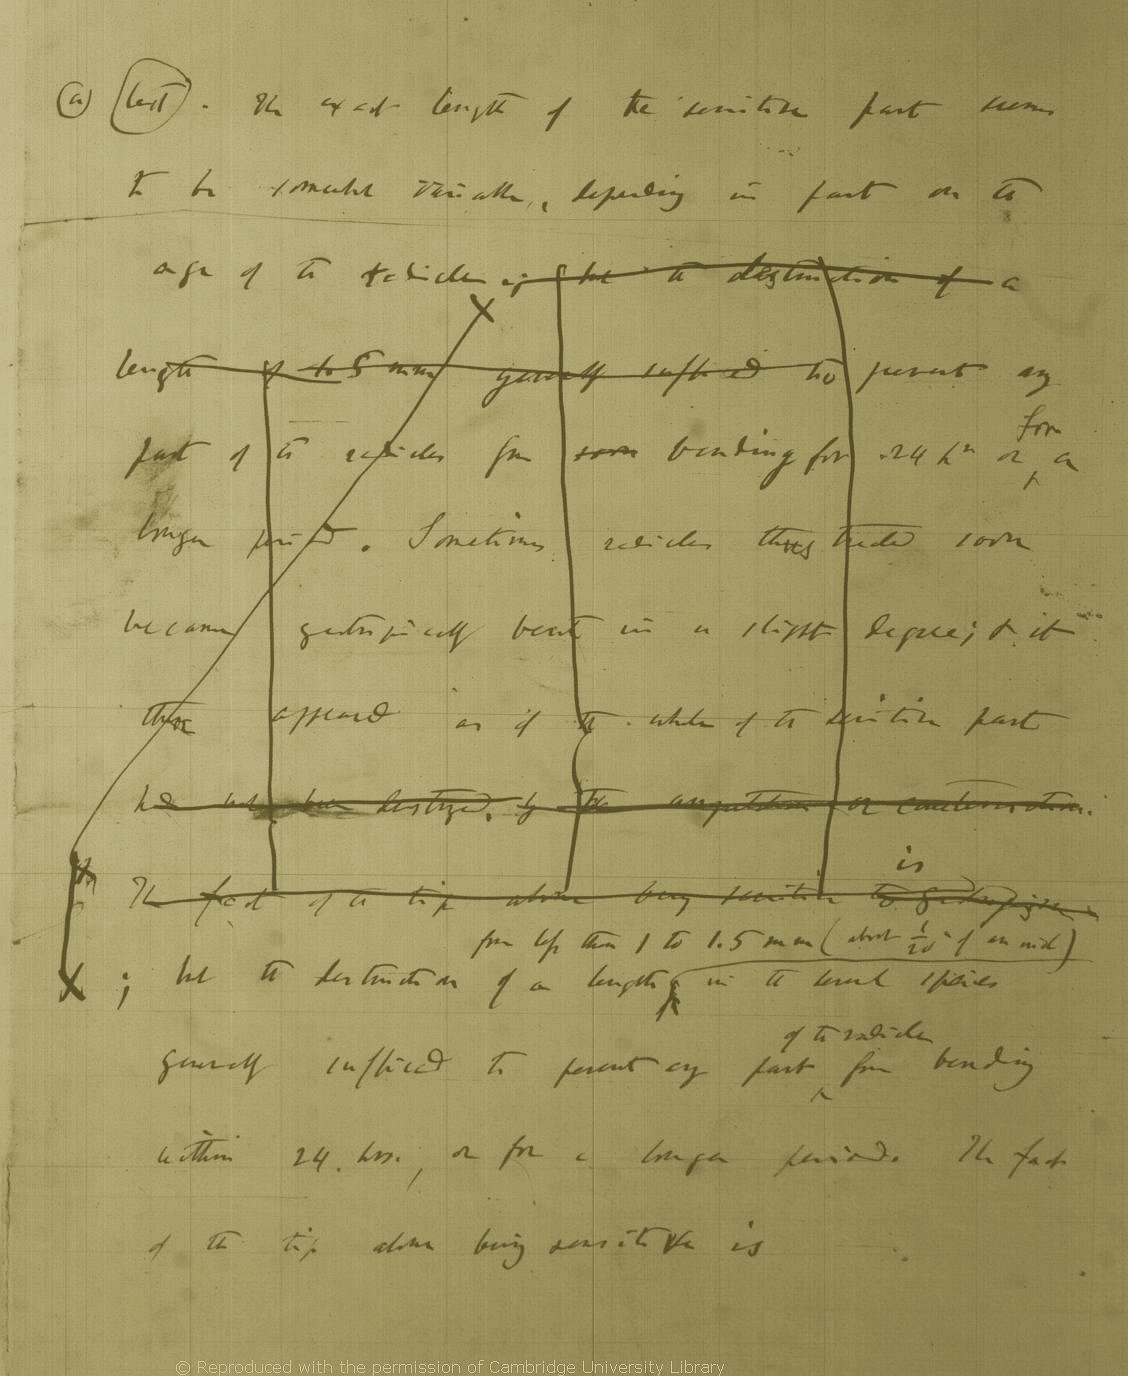 (a) (text). The exact length of the sensitive part seems
to be somewhat variable, depending in part on the
age of the radicle; but the destruction of a
length of to 5 mm generally sufficed to prevent any
for
part of the radicles from soon bending for 24 hrs or a
longer period. Sometimes radicles thus treated soon
became geotropically bent in a slight degree; & it
then appeared as if the whole of the sensitive part
had not been destroyed, by the amputation or cauterisation.
is
The fact of the tip alone being sensitive to geotropism
from less than 1 to 1.5 mm (about 1/20th of an inch)
; but the destruction of a length in the several species
of the radicle
generally sufficed to prevent any part from bending
within 24 hrs., or for a longer period. The fact
of the tip alone being sensitive is
© Reproduced with the permission of Cambridge University Library